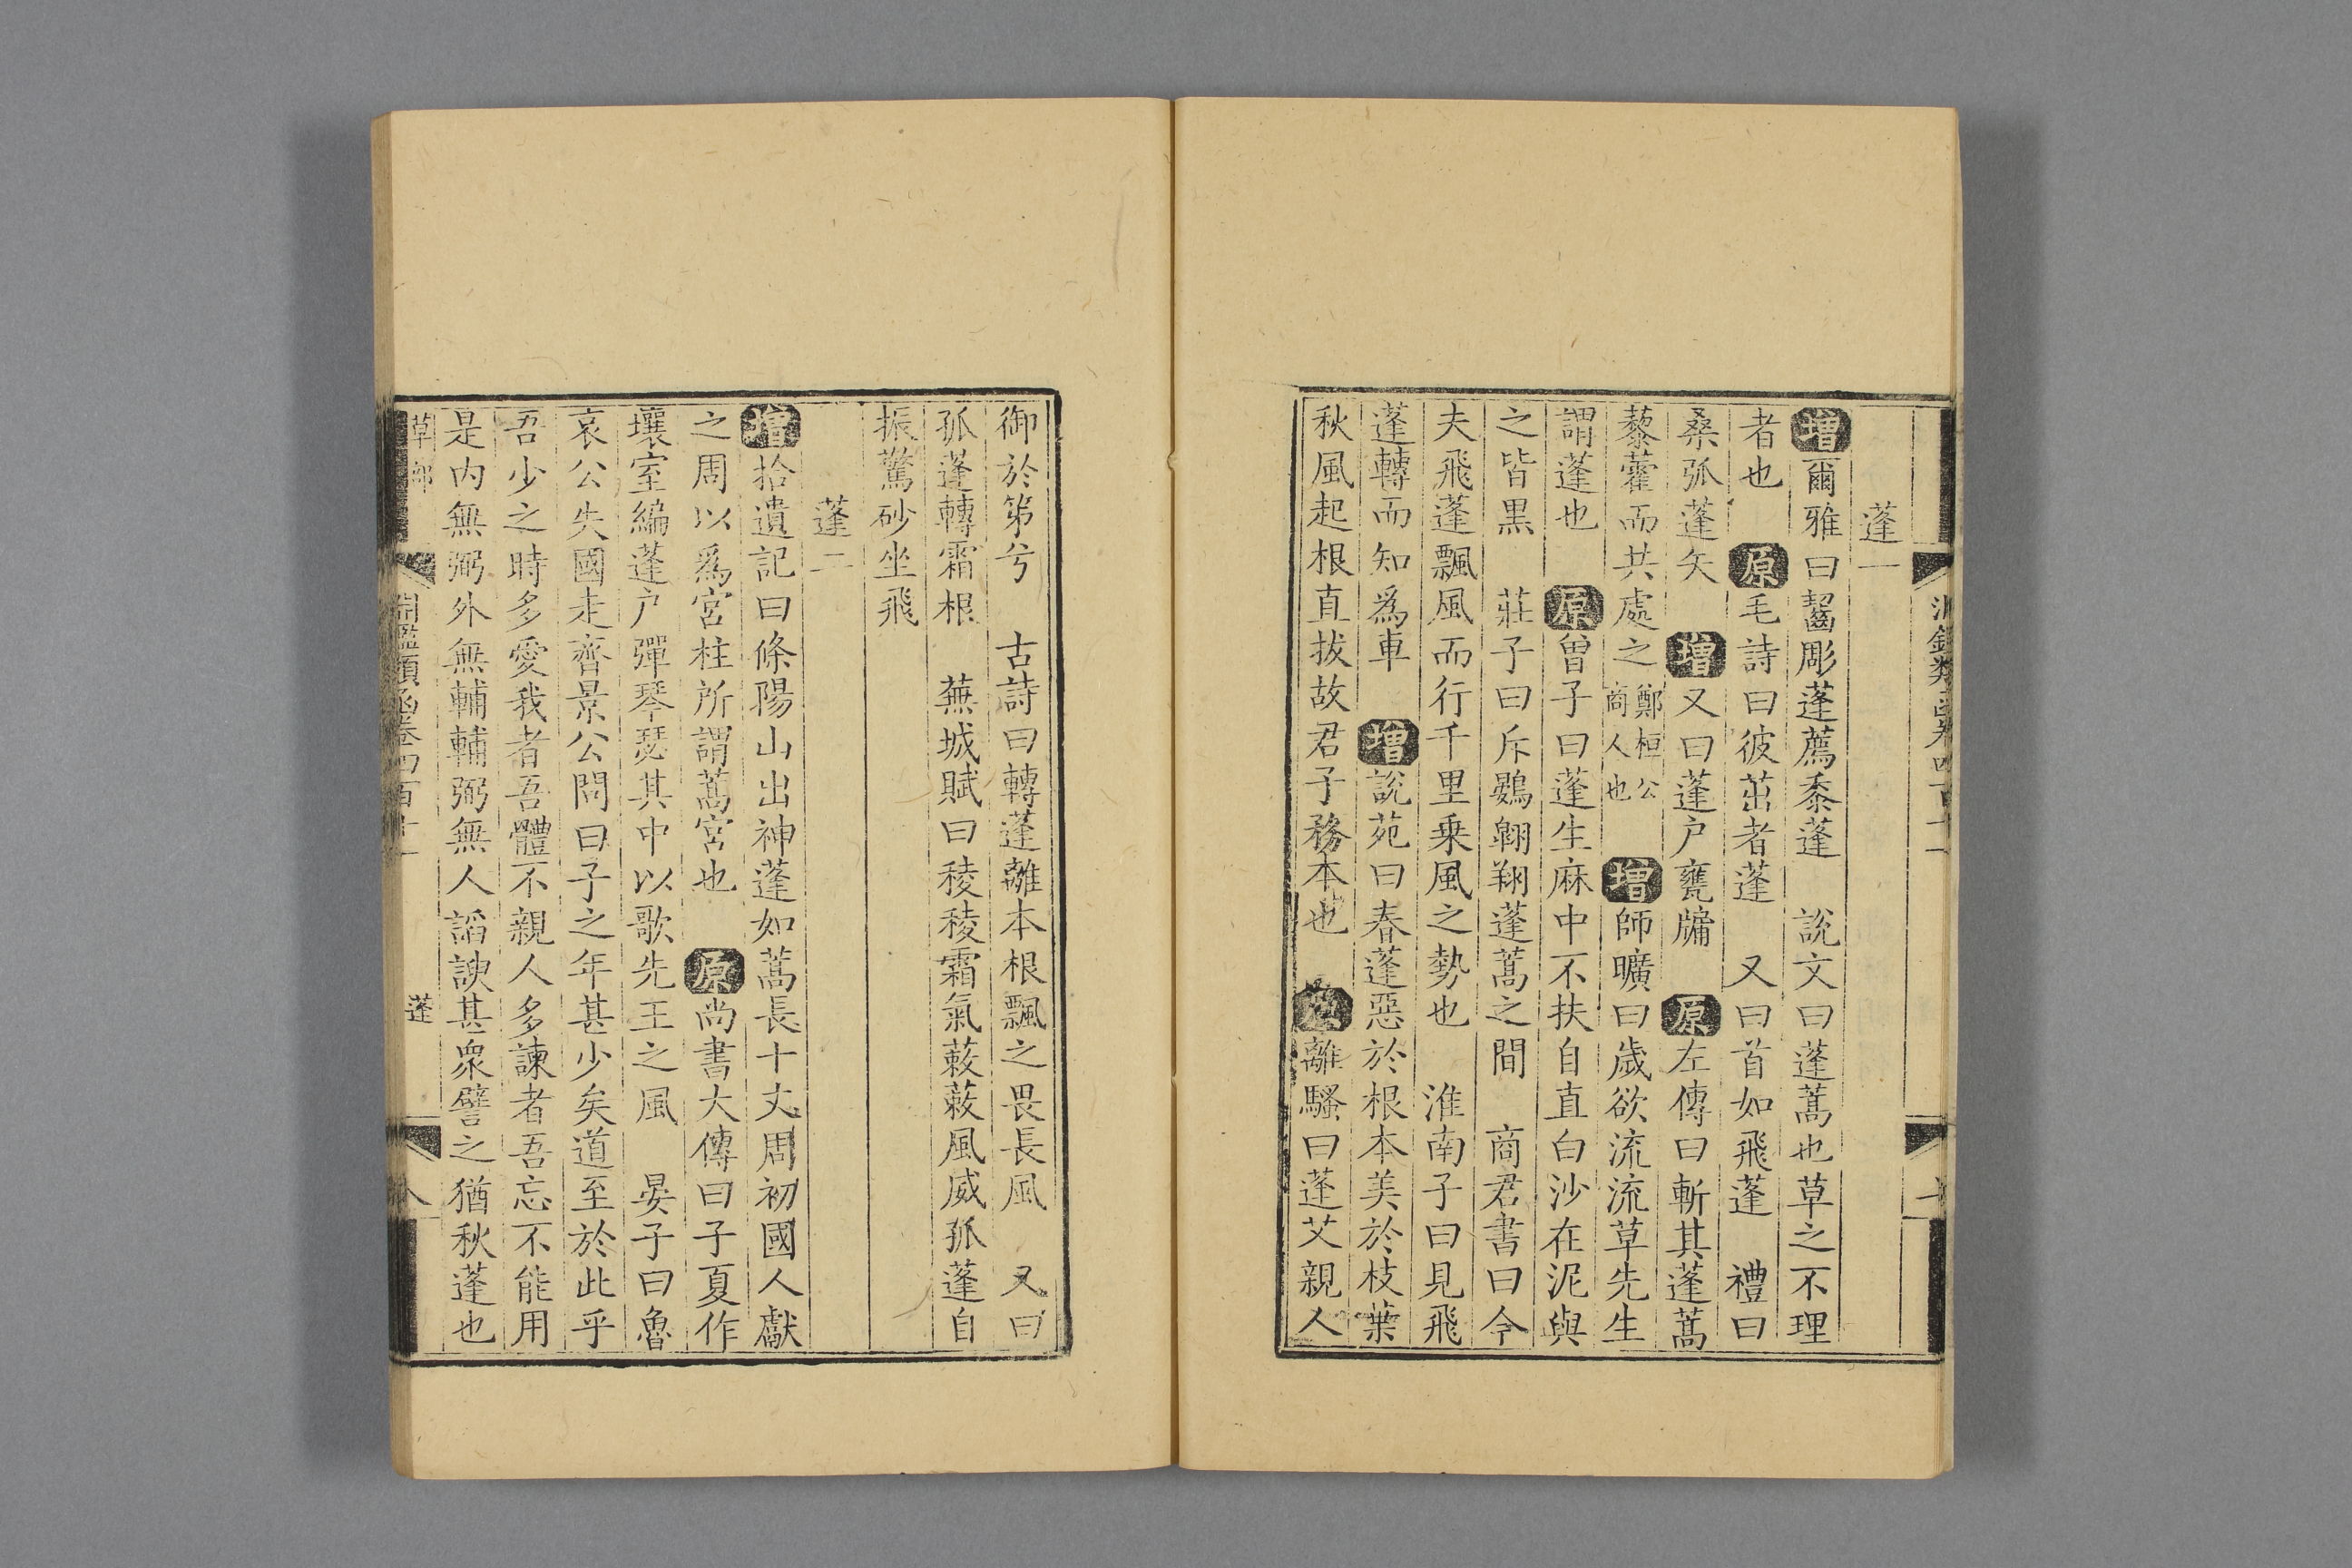 蓬一
增爾雅曰齧彫蓬薦黍蓬　說文曰蓬蒿也草之不理
者也　原毛詩曰彼茁者蓬　又曰首如飛蓬　禮曰
桑弧蓬矢　增又曰蓬户甕牖　原左傳曰斬其蓬蒿
藜藿而共處之鄭桓公商人也　增師曠曰歲欲流流草先生
謂蓬也　原曾子曰蓬生麻中不扶自直白沙在泥與
之皆黒　莊子曰斥鷃翺翔蓬蒿之間　商君書曰今
夫飛蓬飄風而行千里乗風之勢也　淮南子曰見飛
蓬轉而知為車　增說苑曰春蓬惡於根本美於枝葉
秋風起根直拔故君子務本也　原離騷曰蓬艾親人
御於第兮　古詩曰轉蓬離本根飄之畏長風　又曰
孤蓬轉霜根　蕪城賦曰稜稜霜氣蔌蔌風威孤蓬自
振驚砂坐飛
蓬二
增拾遺記曰條陽山出神蓬如蒿長十丈周初國人獻
之周以為宮柱所謂蒿宮也　原尚書大傳曰子夏作
壤室編蓬户彈琴瑟其中以歌先王之風　晏子曰魯
哀公失國走齊景公問曰子之年甚少矣道至於此乎
吾少之時多愛我者吾體不親人多諫者吾忘不能用
是内無弼外無輔輔弼無人謟諛甚衆譬之猶秋蓬也
草部　淵鑑類函卷四百十一　蓬　八